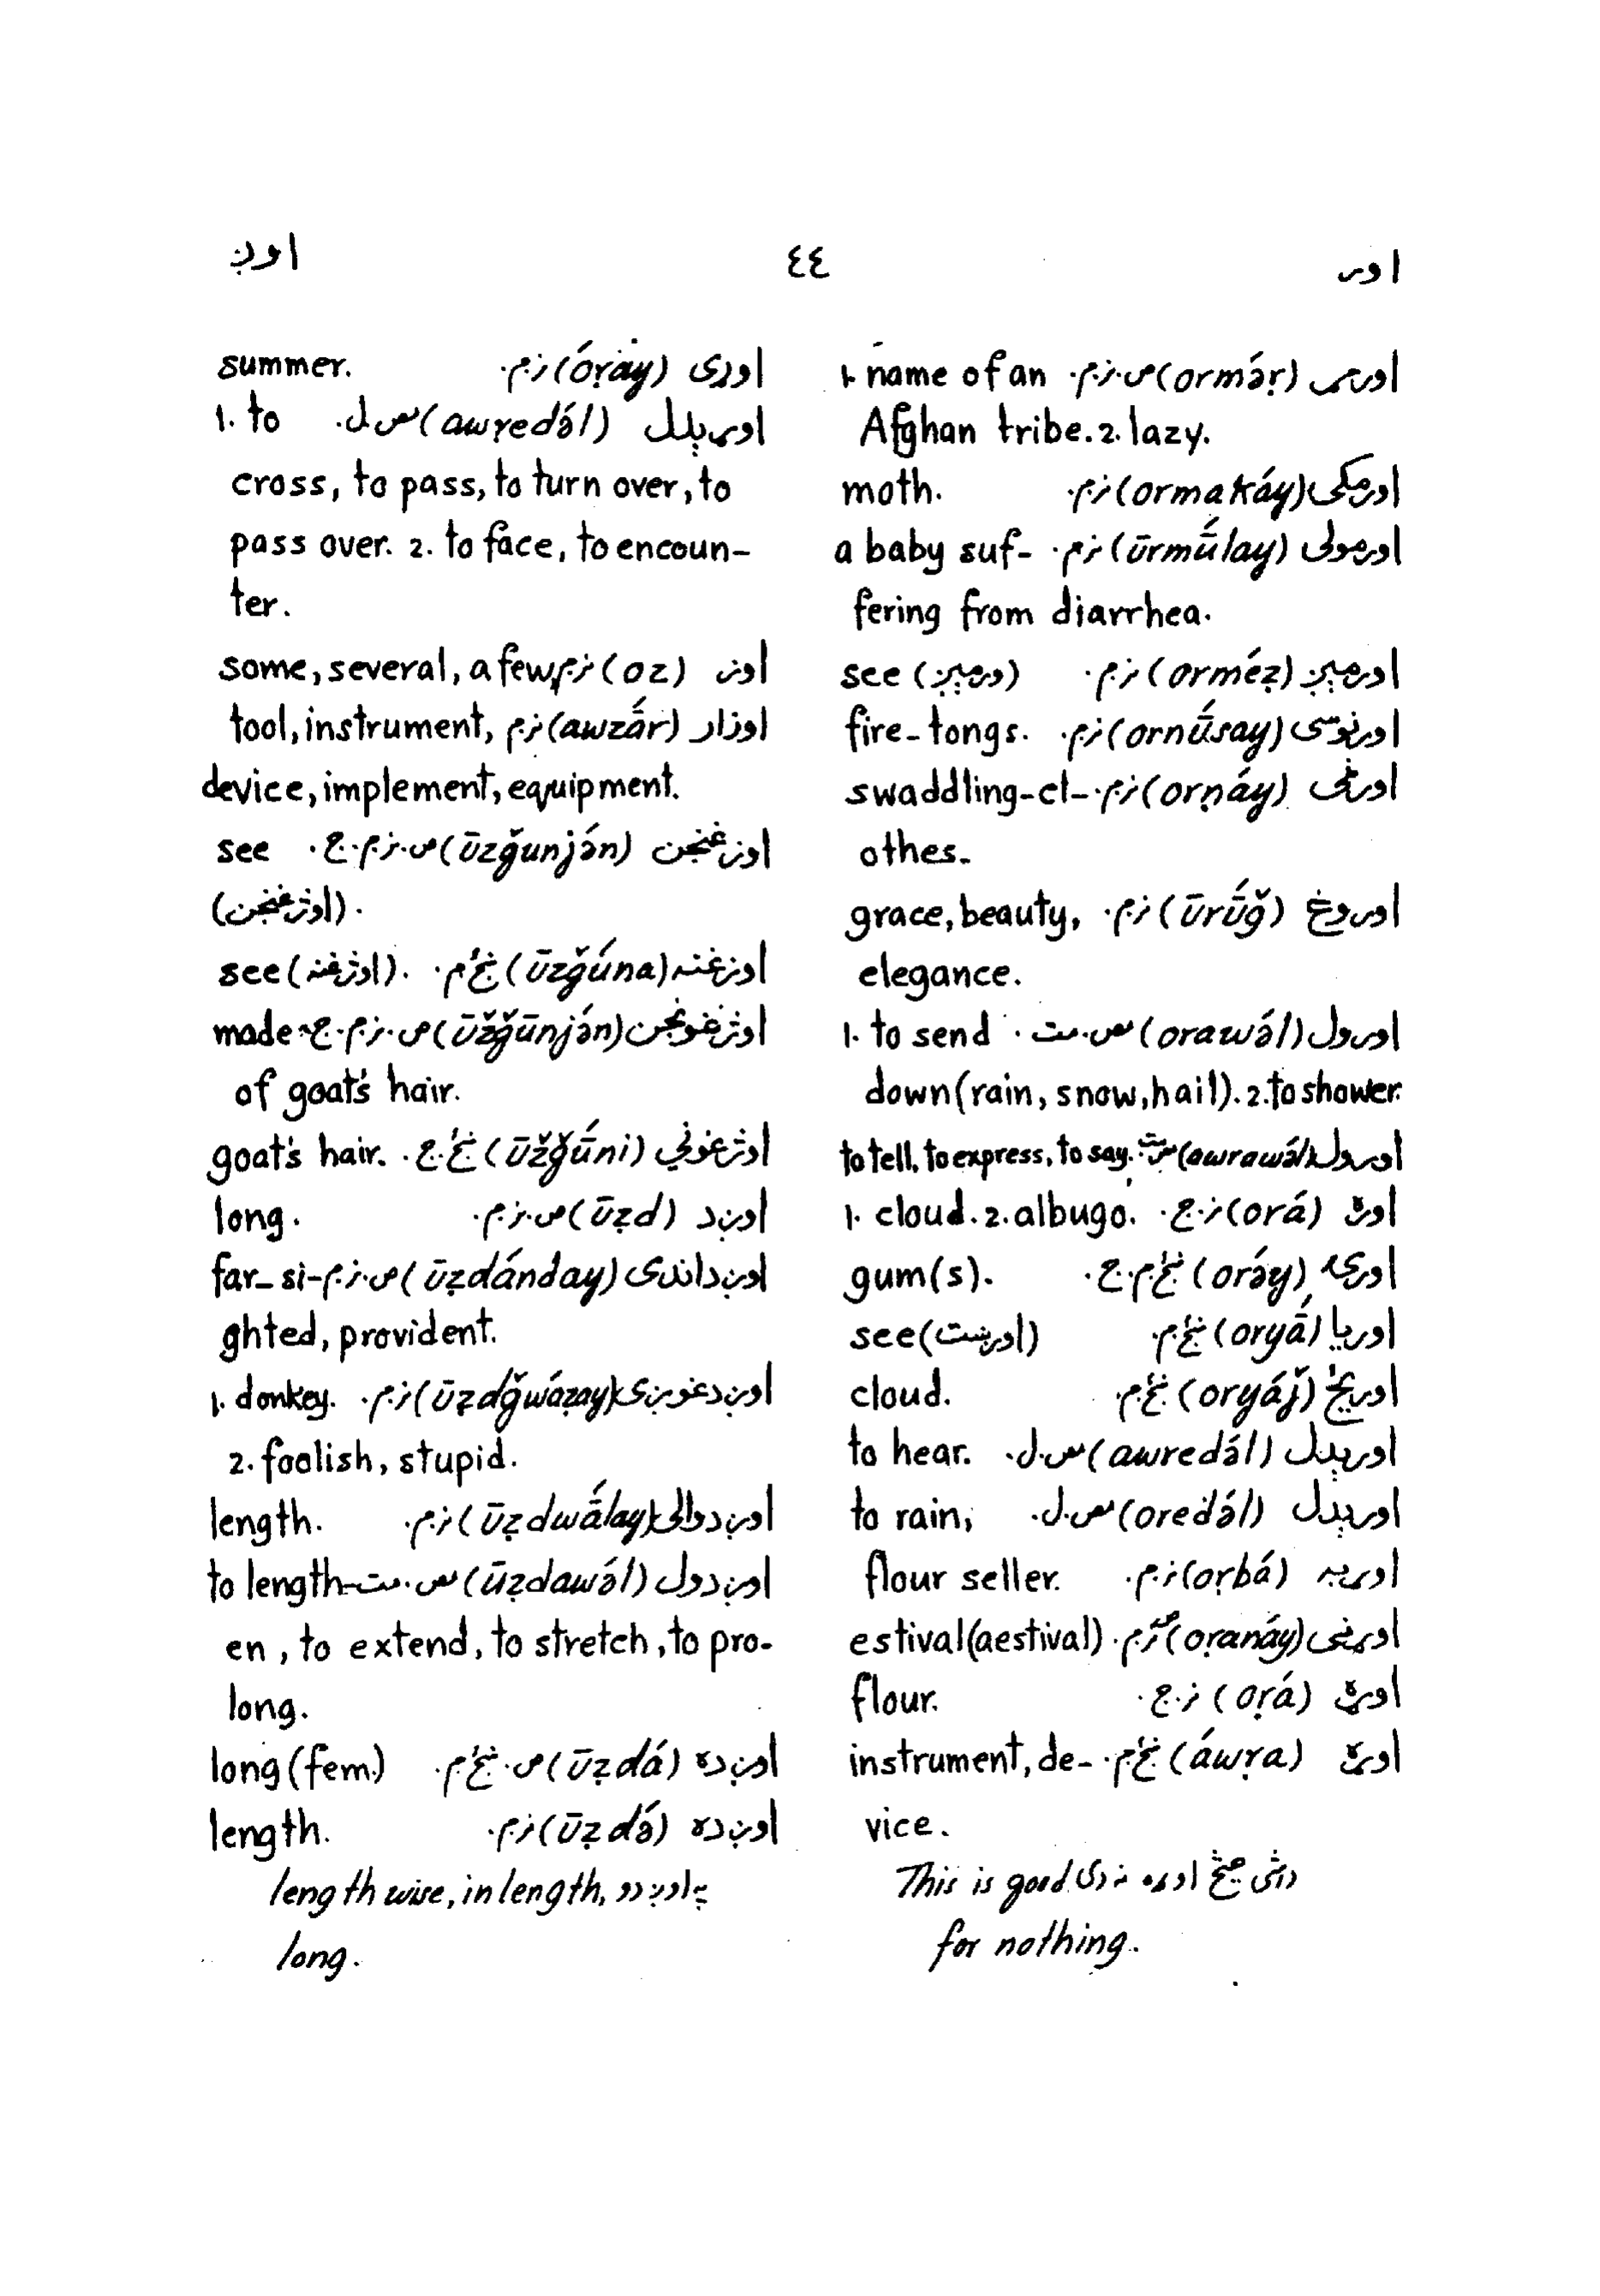 اور ٤٤ اوږ
اورمړ (ormə́ṛ) ص.نرم. 1. name of an
Afghan tribe. 2. lazy.
اورمکی (ormakáy) نرم. moth.
اورمولی (ūrmū́lay) نرم. a baby suf-
fering from diarrhea.
اورمېږ (orméẓ) نرم. see (ورمېږ)
اورنوسی (ornū́say) نرم. fire-tongs.
اورڼی (orṇáy) نرم. swaddling-cl-
othes.
اوروغ (ūrū́ğ) نرم. grace, beauty,
elegance.
اورول (orawə́l) مص.مت. 1. to send
down (rain, snow, hail). 2. to shower.
اورول (awrawə́l) مص.مت. to tell, to express, to say.
اوره (orá) نرج. 1. cloud. 2. albugo.
اورۍ (orə́y) ښځ.م.ج. gum(s).
اوریا (oryā́) ښځ.م. see (اورښت)
اوریځ (oryáj̆) ښځ.م. cloud.
اورېدل (awredə́l) مص.ل. to hear.
اورېدل (oredə́l) مص.ل. to rain;
اوړبه (oṛbá) نرم. flour seller.
اوړنی (oṛanáy) ص.نرم. estival (aestival)
اوړه (oṛá) نرج. flour.
اوړه (áwṛa) ښځ.م. instrument, de-
vice.
This is good
for nothing.
اوړی (óṛay) نرم. summer.
اوړېدل (awṛedə́l) مص.ل. 1. to
cross, to pass, to turn over, to
pass over. 2. to face, to encoun-
ter.
اوز (oz) نرم. some, several, a few,
اوزار (awzā́r) نرم. tool, instrument,
device, implement, equipment.
اوزغنجن (ūzğunjə́n) ص.نرم.ج. see
(اوژغنجن).
اوزغنه (ūzğúna) ښځ.م. see (اوژغنه).
اوژغونجن (ūžğūnjə́n) ص.نرم.ج. made
of goat's hair.
اوژغونې (ūžğū́ni) ښځ.ج. goat's hair.
اوږد (ūẓd) ص.نرم. long.
اوږداندی (ūẓdánday) ص.نرم. far-si-
ghted, provident.
اوږدغوږی (ūẓdğwáẓay) نرم. 1. donkey.
2. foolish, stupid.
اوږدوالی (ūẓdwā́lay) نرم. length.
اوږدول (ūẓdawə́l) مص.مت. to length-
en, to extend, to stretch, to pro-
long.
اوږده (ūẓdá) ص.ښځ.م. long (fem.)
اوږده (ūẓdə́) نرم. length.
په اوږدو lengthwise, in length,
long.